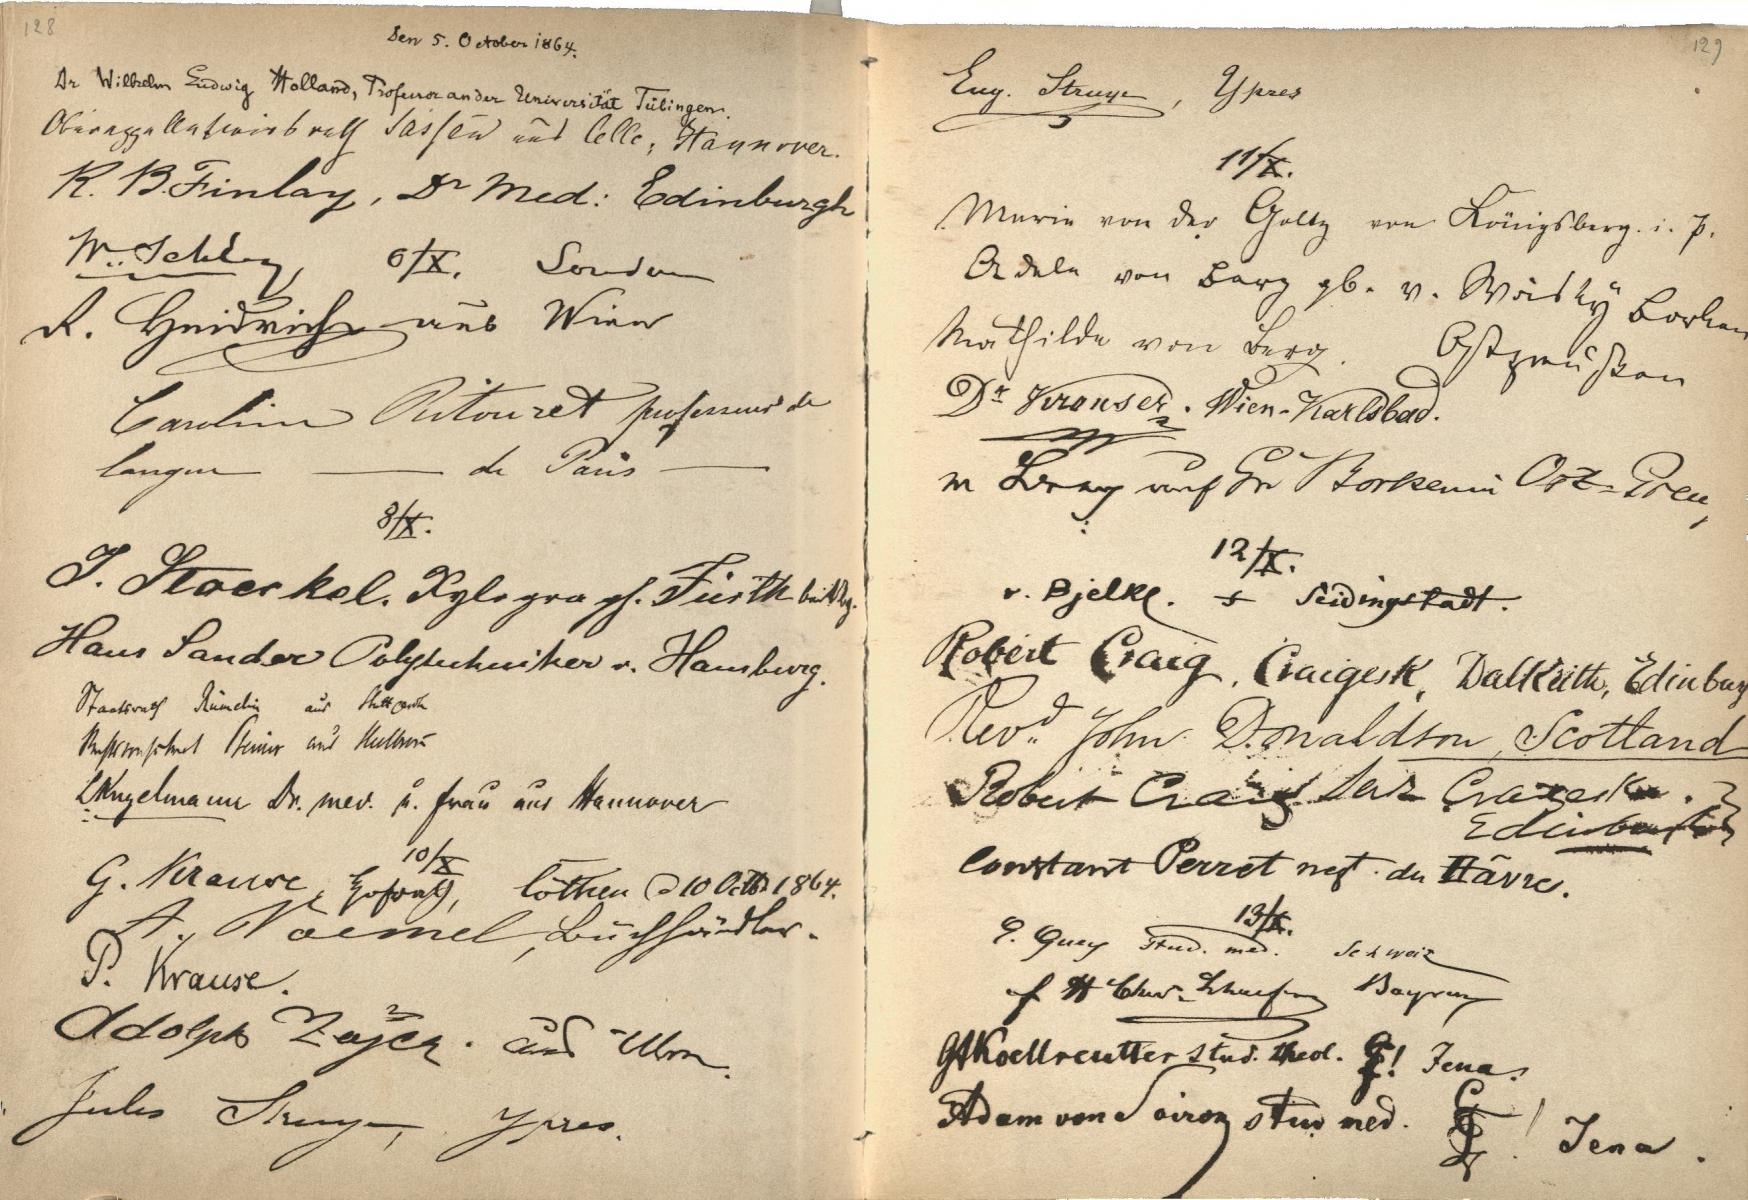 128
Den 5. October 1864.
Dr Wilhelm Ludwig Holland, Professor an der Universität Tübingen.
Oberappellationsrath Sassen aus Celle, Hannover.
R. B. Finlay, Dr Med: Edinburgh
W. Schley, 6/X. London
R. Heidrich aus Wien
Caroline professeur de
langue — de Paris —
8/X.
J. Stoerkel. Xylograph. Fürth bei Nbg.
Hans Sander Polytechniker v. Hamburg.
Staatsrath Rümelin aus Stuttgart
aus Heilbronn
Engelmann Dr. med. u. Frau aus Hannover
10/X
G. Krause, Hofrath, Cöthen d 10 Octb 1864.
A. Voemel, Buchhändler.
P. Krause.
Adolph aus Ulm.
Jules Struye, Ypres.
129
Eug. Struye, Ypres
11/X.
Marie von der Goltz von Königsberg. i. P.
Adele von Berg gb. v. Borken
Mathilde von Berg. Ostpreußen
Dr Kronser. Wien-Karlsbad.
v Berg auf Gr Borken in Ost-Preu
12/X.
v. Bjelke. Seidingstadt.
Robert Craig, Craigesk, Dalkeith, Edinburg
Revd. John Donaldson, Scotland
Robert Craig Craigesk.
Edinburgh
Constant Perret negt. du Hâvre.
13/X.
stud. med. Schweiz
Bayern
Koellreutter stud. theol. ! Jena.
Adam von Soiron stud med. ! Jena.